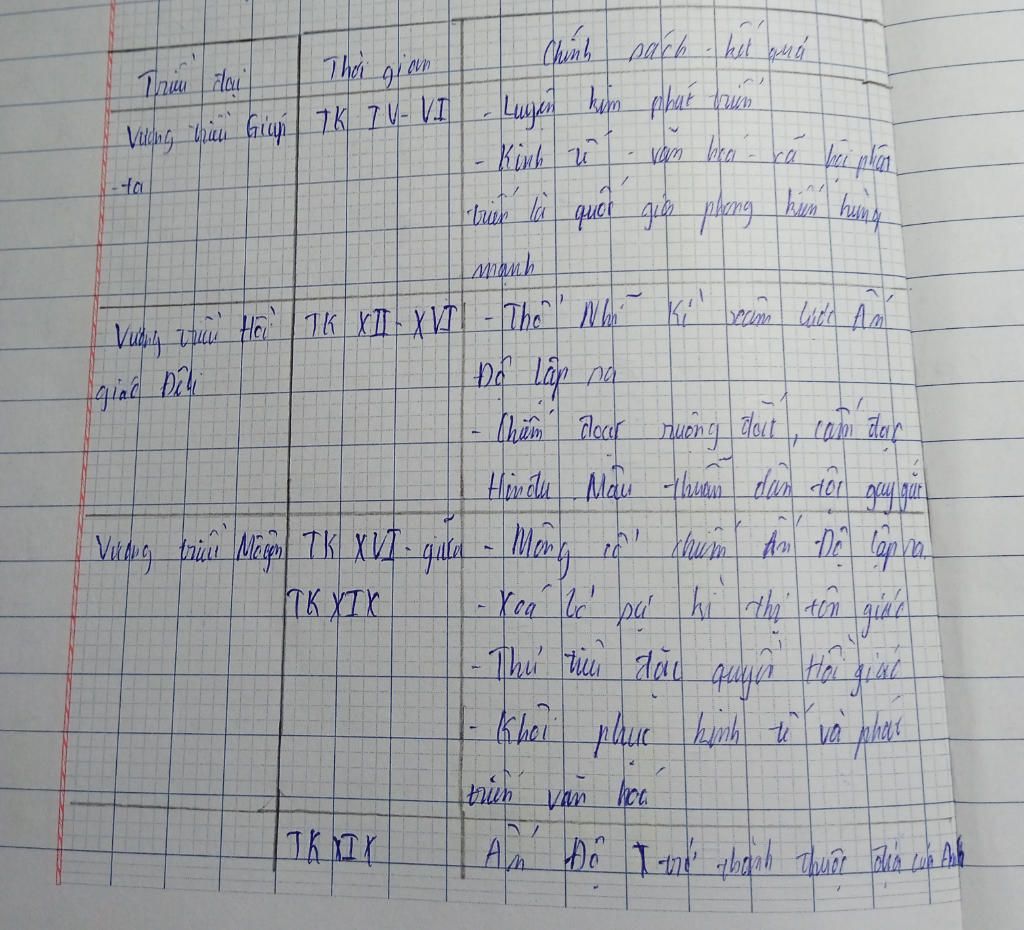 Triều đại Thời gian Chính sách - kết quả
Vương triều Giúp TK IV - VI - Luyện kim phát triển
-ta - Kinh tế - văn hoá - xã hội phát
triển là quốc gia phong kiến hùng
mạnh
Vương triều Hồi TK XII - XVI - Thổ Nhĩ Kì xâm lược Ấn
giáo Đêli Độ lập ra
- Chiếm đoạt ruộng đất, cấm đạo
Hindu. Mâu thuẫn dân tộc gay gắt
Vương triều Môgôn TK XVI - giữa - Mông cổ chiếm Ấn Độ lập ra
TK XIX - Xoá bỏ sự kì thị tôn giáo
- Thủ tiêu đặc quyền Hồi giáo
- Khôi phục kinh tế và phát
triển văn hoá
TK XIX Ấn Độ trở thành thuộc địa của Anh